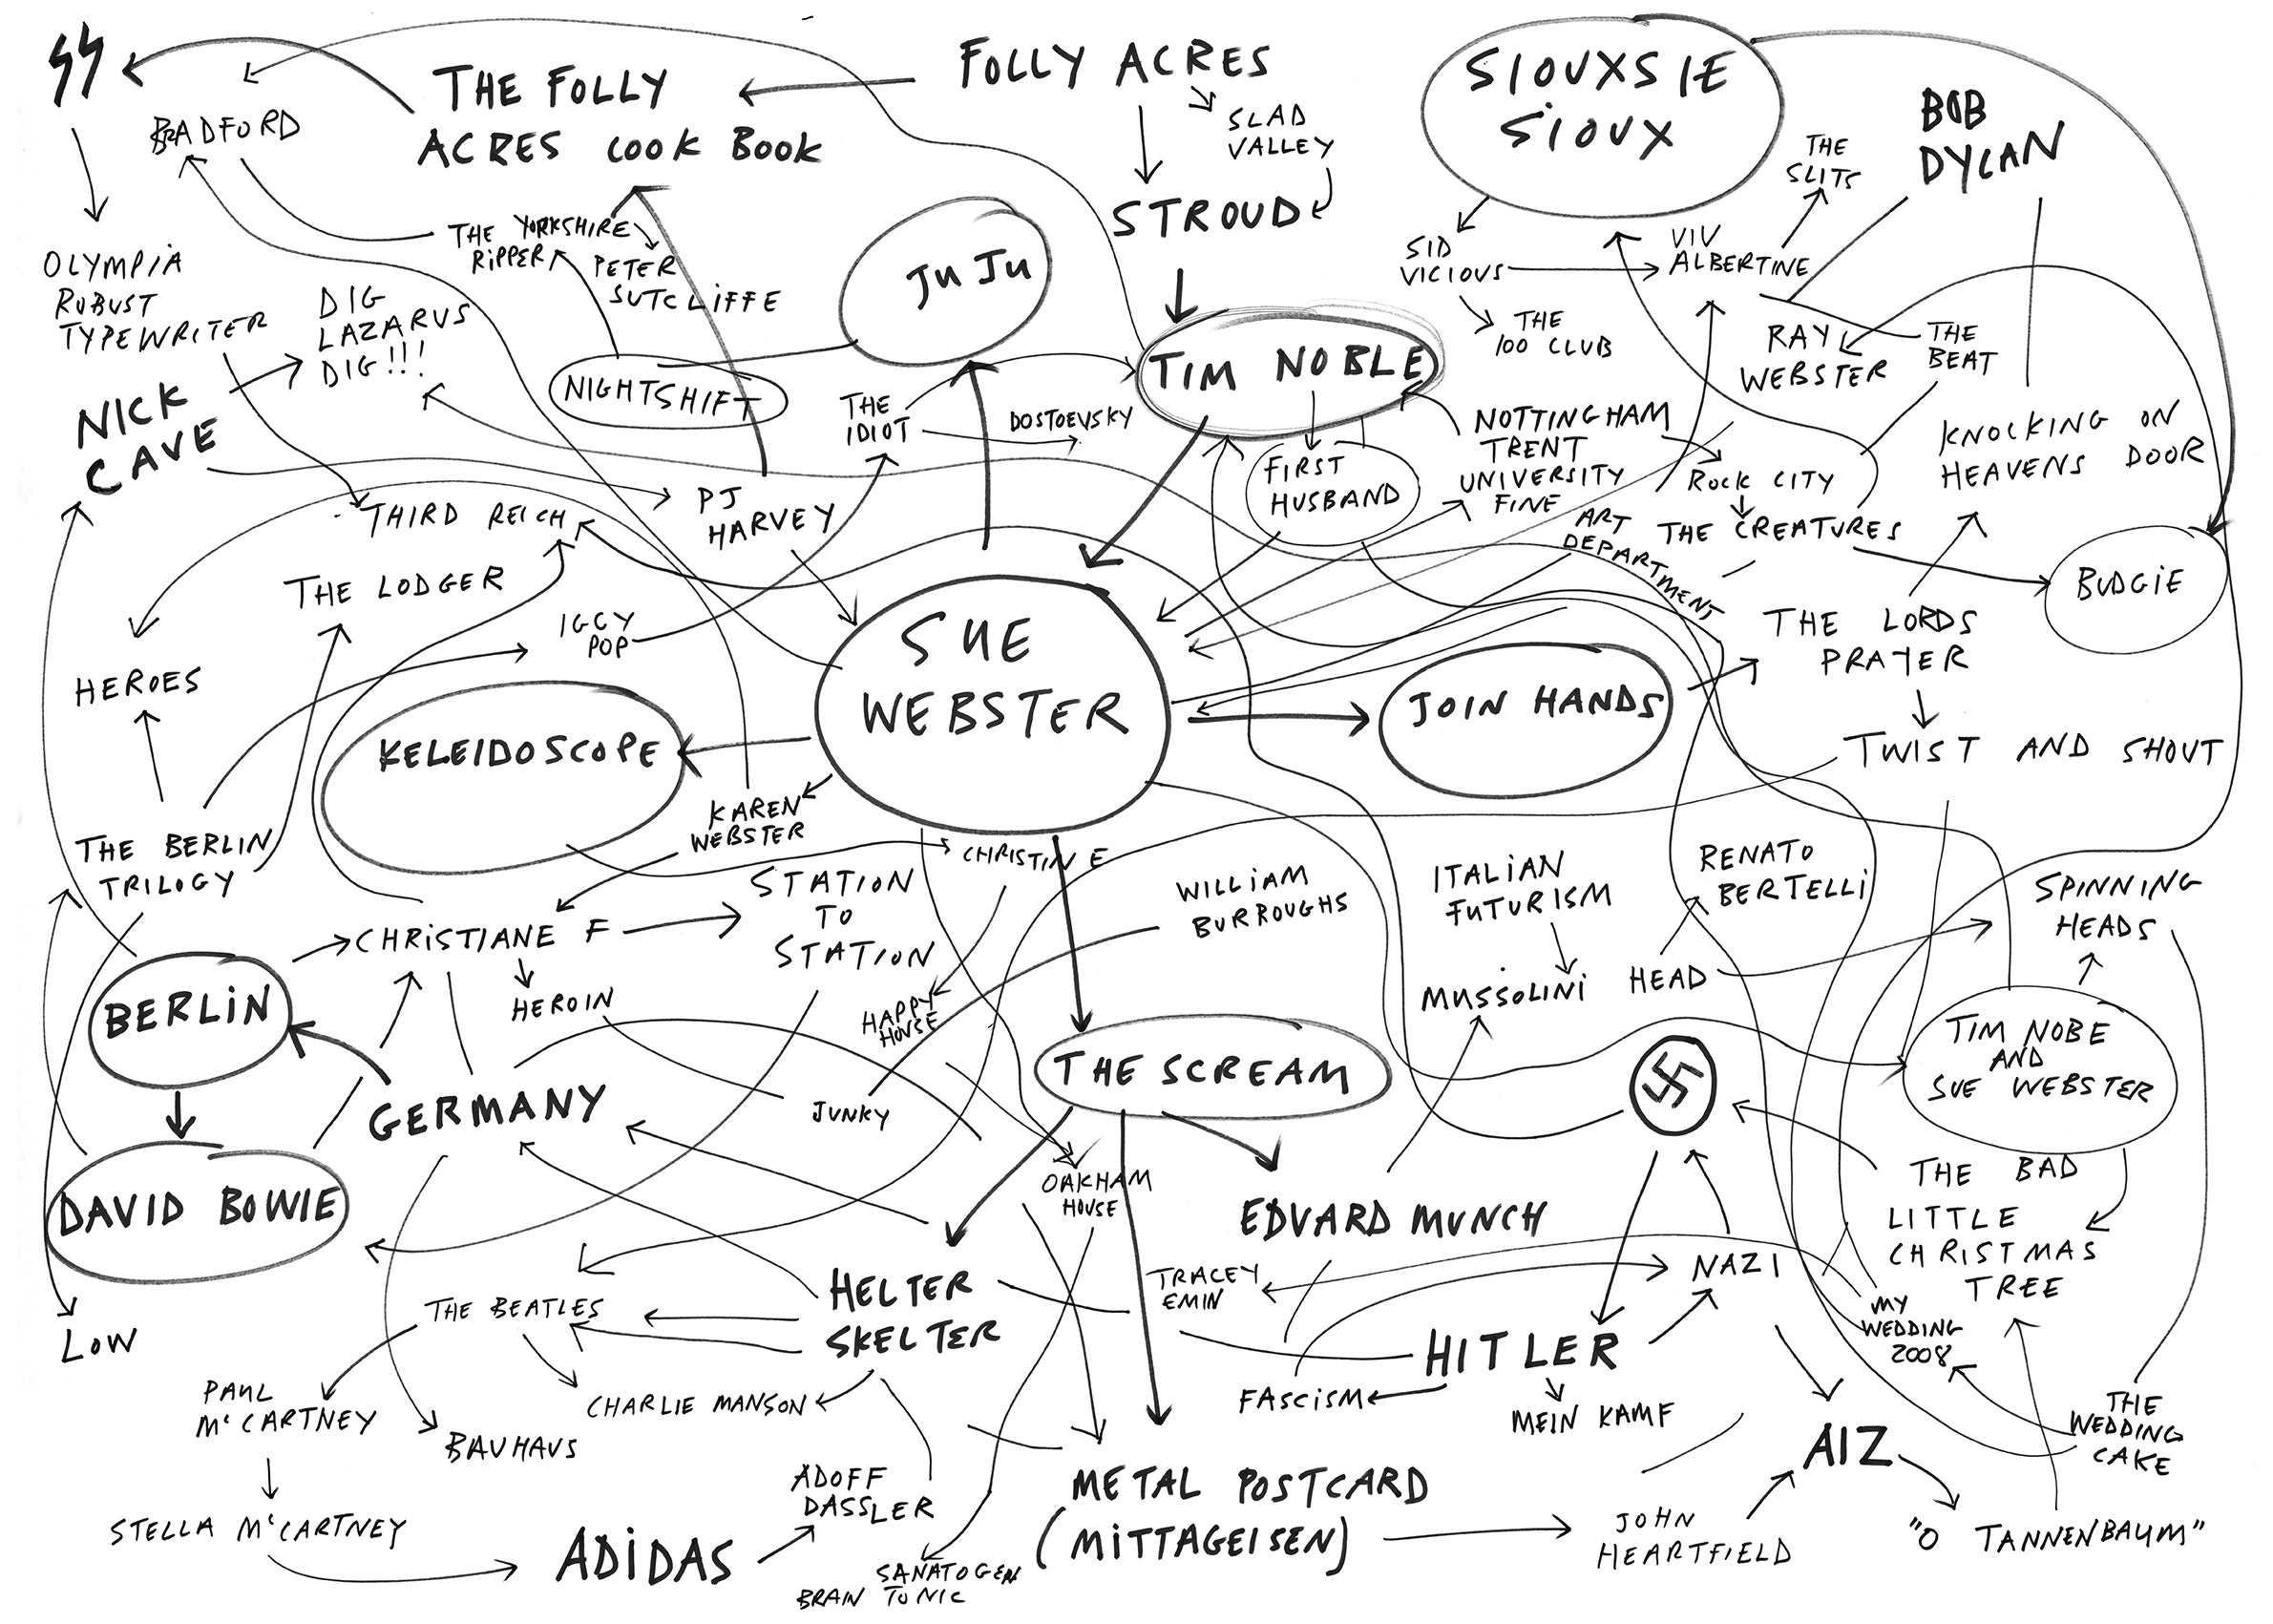 FOLLY ACRES
THE FOLLY
ACRES COOK BOOK
SLAD
VALLEY
STROUD
SIOUXSIE
SIOUX
BOB
DYLAN
THE
SLITS
BRADFORD
THE YORKSHIRE
RIPPER
PETER
SUTCLIFFE
JUJU
SID
VICIOUS
VIV
ALBERTINE
THE
100 CLUB
OLYMPIA
ROBUST
TYPEWRITER
DIG
LAZARUS
DIG!!!
NICK
CAVE
NIGHTSHIFT
THE
IDIOT
DOSTOEVSKY
TIM NOBLE
FIRST
HUSBAND
NOTTINGHAM
TRENT
UNIVERSITY
FINE
ART
DEPARTMENT
RAY
WEBSTER
THE
BEAT
ROCK CITY
THE CREATURES
KNOCKING ON
HEAVENS DOOR
BUDGIE
THIRD REICH
PJ
HARVEY
THE LODGER
IGGY
POP
HEROES
SUE
WEBSTER
JOIN HANDS
THE LORDS
PRAYER
TWIST AND SHOUT
KELEIDOSCOPE
KAREN
WEBSTER
CHRISTINE
THE BERLIN
TRILOGY
CHRISTIANE F
STATION
TO
STATION
HEROIN
HAPPY
HOUSE
WILLIAM
BURROUGHS
ITALIAN
FUTURISM
MUSSOLINI
HEAD
RENATO
BERTELLI
SPINNING
HEADS
BERLIN
GERMANY
JUNKY
THE SCREAM
TIM NOBE
AND
SUE WEBSTER
DAVID BOWIE
OAKHAM
HOUSE
EDVARD MUNCH
THE BAD
LITTLE
CHRISTMAS
TREE
LOW
THE BEATLES
HELTER
SKELTER
TRACEY
EMIN
NAZI
HITLER
FASCISM
MEIN KAMF
MY
WEDDING
2008
THE
WEDDING
CAKE
PAUL
McCARTNEY
BAUHAUS
CHARLIE MANSON
ADOFF
DASSLER
METAL POSTCARD
(MITTAGEISEN)
AIZ
JOHN
HEARTFIELD
"O TANNENBAUM"
STELLA McCARTNEY
ADIDAS
SANATOGEN
BRAIN TONIC